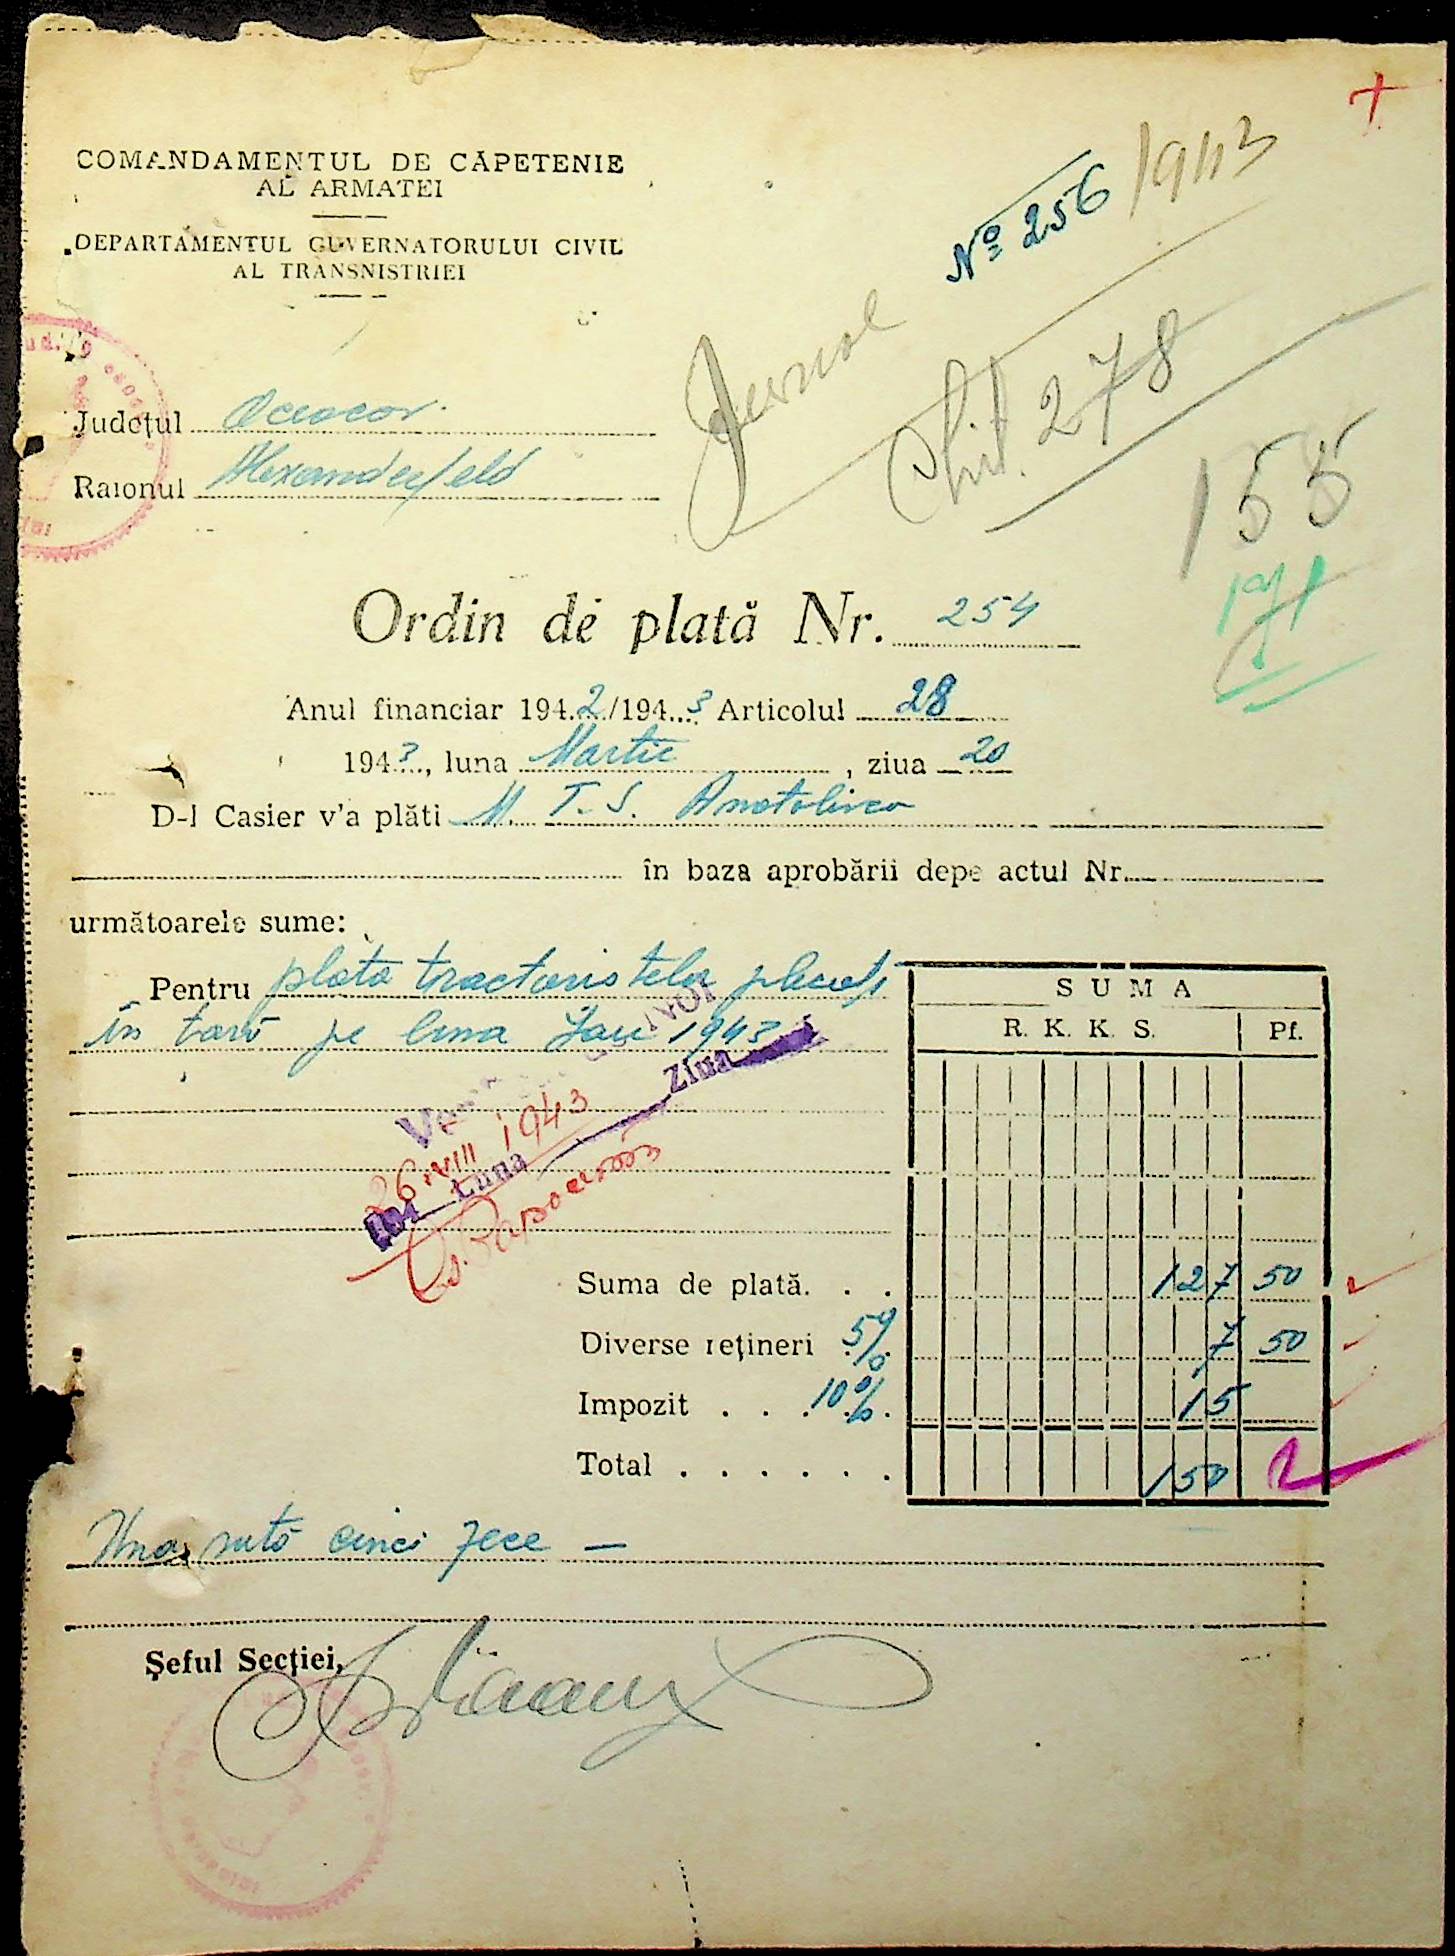 COMANDAMENTUL DE CĂPETENIE
AL ARMATEI
DEPARTAMENTUL GUVERNATORULUI CIVIL
AL TRANSNISTRIEI
Nº 256 /943
Jurnal
Chit. 278
155
Județul Oceacov.
Raionul Alexanderfeld
Ordin de plată Nr. 254
Anul financiar 1942/1943 Articolul 28
1943, luna Martie, ziua 20
D-l Casier v'a plăti M. T. S. Anatolievca
în baza aprobării depe actul Nr.
următoarele sume:
Pentru plata tractoristelor plecați
în țară pe luna Ian 1943
SUMA
R. K. K. S. Pf.
Ziua
26.VIII 1943
Luna
Suma de plată. . . 127 50
Diverse rețineri 5% 7 50
Impozit . . . 10% 15
Total . . . . . . 150
Una sută cinci zece —
Șeful Secției,